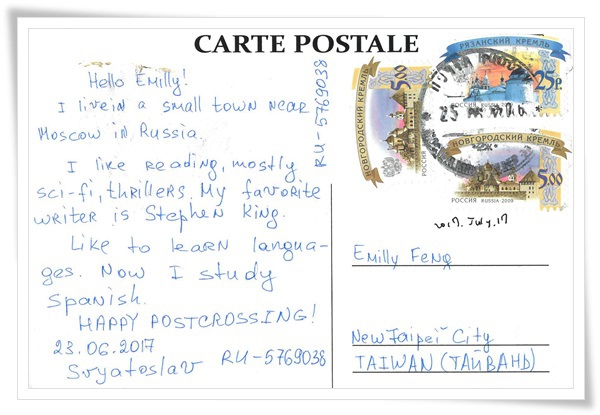 CARTE POSTALE
Hello Emilly!
I live in a small town near
Moscow in Russia.
I like reading, mostly
sci-fi, thrillers. My favorite
writer is Stephen King.
Like to learn langua-
ges. Now I study
Spanish.
HAPPY POSTCROSSING!
23.06.2017
Svyatoslav RU-5769038
RU-5769038
НОВГОРОДСКИЙ КРЕМЛЬ
5.00
РОССИЯ
РЯЗАНСКИЙ КРЕМЛЬ
25р.
РОССИЯ RUSSIA
НОВГОРОДСКИЙ КРЕМЛЬ
5.00
РОССИЯ RUSSIA-2009
2017. July. 17
Emilly Feng
New Taipei City
TAIWAN (ТАЙВАНЬ)